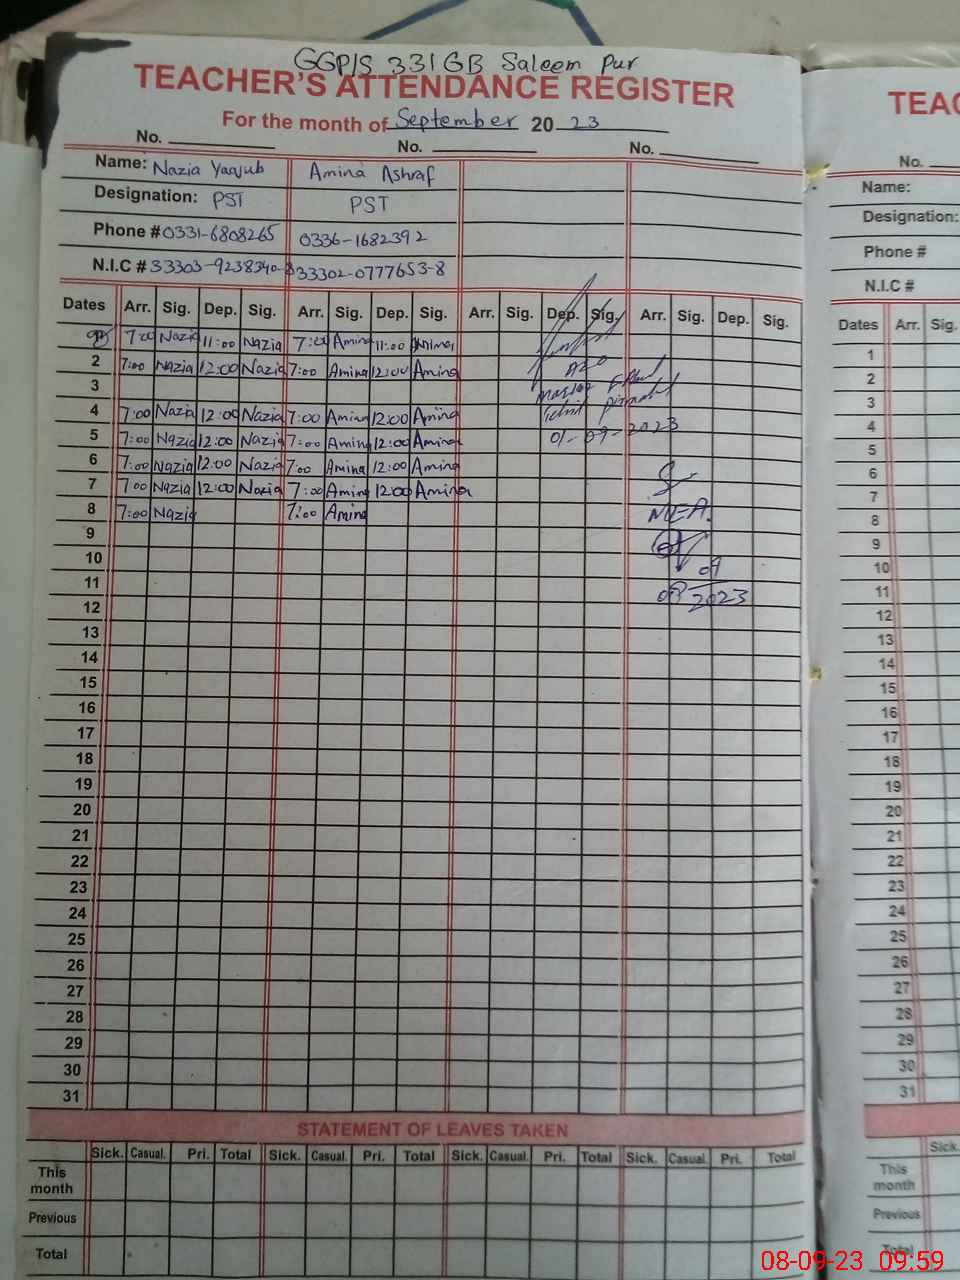 GGP/S 331 GB Saleem Pur
TEACHER'S ATTENDANCE REGISTER
For the month of September 20 23
No. No. No.
Name: Nazia Yaqub Amina Ashraf
Designation: PST PST
Phone # 0331-6808265 0336-1682392
N.I.C # 33303-9238340- 33302-0777653-8
Dates Arr. Sig. Dep. Sig. Arr. Sig. Dep. Sig. Arr. Sig. Dep. Sig. Arr. Sig. Dep. Sig.
7:00 Nazia 11:00 Nazia 7:00 Amina 11:00 Amina
2 7:00 Nazia 12:00 Nazia 7:00 Amina 12:00 Amina
AEO
3
4 7:00 Nazia 12:00 Nazia 7:00 Amina 12:00 Amina
5 7:00 Nazia 12:00 Nazia 7:00 Amina 12:00 Amina
01-09-2023
6 7:00 Nazia 12:00 Nazia 7:00 Amina 12:00 Amina
7 7:00 Nazia 12:00 Nazia 7:00 Amina 12:00 Amina
8 7:00 Nazia 7:00 Amina
MEA.
9
10
09
11
2023
12
13
14
15
16
17
18
19
20
21
22
23
24
25
26
27
28
29
30
31
STATEMENT OF LEAVES TAKEN
Sick. Casual. Pri. Total Sick. Casual. Pri. Total Sick. Casual. Pri. Total Sick. Casual. Pri. Total
This
month
Previous
Total
TEAC
No.
Name:
Designation:
Phone #
N.I.C #
Dates Arr. Sig.
1
2
3
4
5
6
7
8
9
10
11
12
13
14
15
16
17
18
19
20
21
22
23
24
25
26
27
28
29
30
31
Sick.
This
month
Previous
Total
08-09-23 09:59